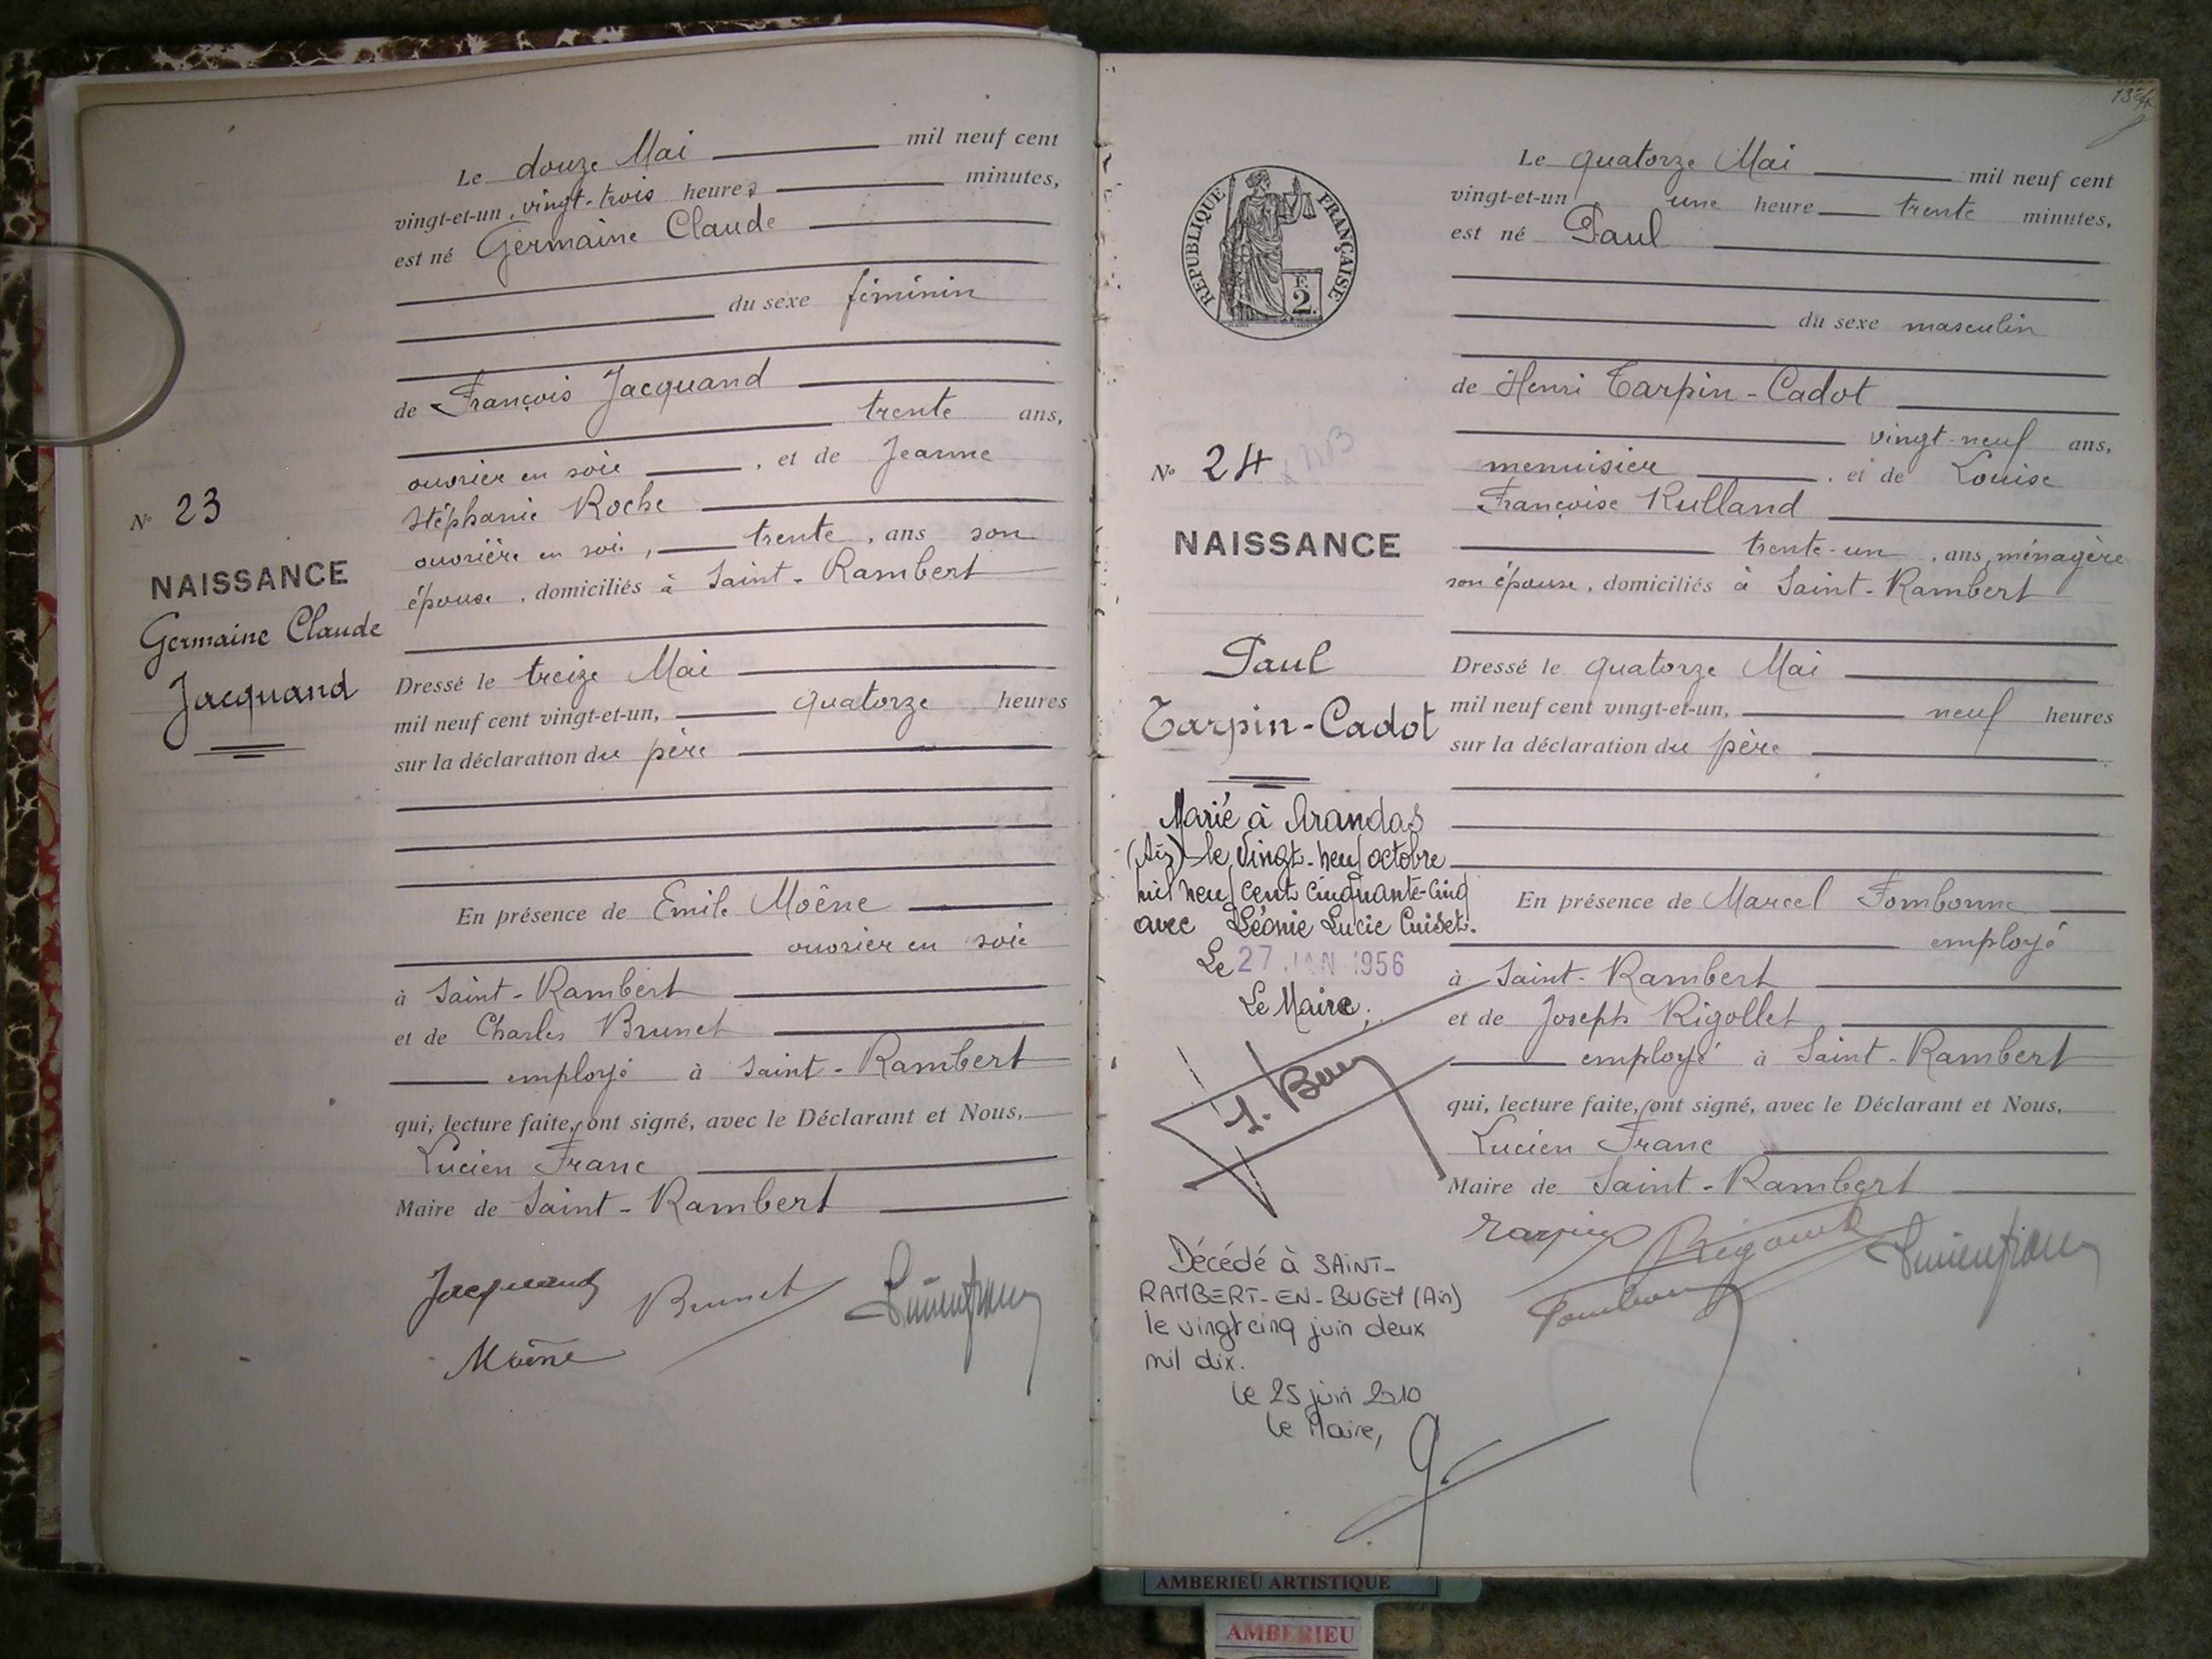 Le douze Mai mil neuf cent
vingt-et-un, vingt-trois heures minutes,
est né Germaine Claude
du sexe féminin
de François Jacquand
trente ans,
ouvrier en soie , et de Jeanne
Stéphanie Roche
ouvrière en soie, trente, ans son
épouse, domiciliés à Saint-Rambert
Dressé le treize Mai
mil neuf cent vingt-et-un, quatorze heures
sur la déclaration du père
En présence de Emile Moêne
ouvrier en soie
à Saint-Rambert
et de Charles Brunet
employé à Saint-Rambert
qui, lecture faite, ont signé, avec le Déclarant et Nous,
Lucien Franc
Maire de Saint-Rambert
Jacquand Brunet
Moêne
N° 23
NAISSANCE
Germaine Claude
Jacquand
REPUBLIQUE FRANÇAISE
F.
2.
N° 24
NAISSANCE
Paul
Tarpin-Cadot
Marié à Arandas
(Ain) le vingt-neuf octobre
mil neuf cent cinquante-cinq
avec Léonie Lucie Cuiset.
Le 27 JAN 1956
Le Maire,
Décédé à SAINT-
RAMBERT-EN-BUGEY (Ain)
le vingt cinq juin deux
mil dix.
le 25 juin 2010
le Maire,
Le quatorze Mai mil neuf cent
vingt-et-un une heure trente minutes,
est né Paul
du sexe masculin
de Henri Tarpin-Cadot
vingt-neuf ans,
menuisier , et de Louise
Françoise Rulland
trente-un, ans, ménagère
son épouse, domiciliés à Saint-Rambert
Dressé le quatorze Mai
mil neuf cent vingt-et-un, neuf heures
sur la déclaration du père
En présence de Marcel Fombonne
employé
à Saint-Rambert
et de Joseph Rigollet
employé à Saint-Rambert
qui, lecture faite, ont signé, avec le Déclarant et Nous,
Lucien Franc
Maire de Saint-Rambert
AMBERIEU ARTISTIQUE
AMBERIEU